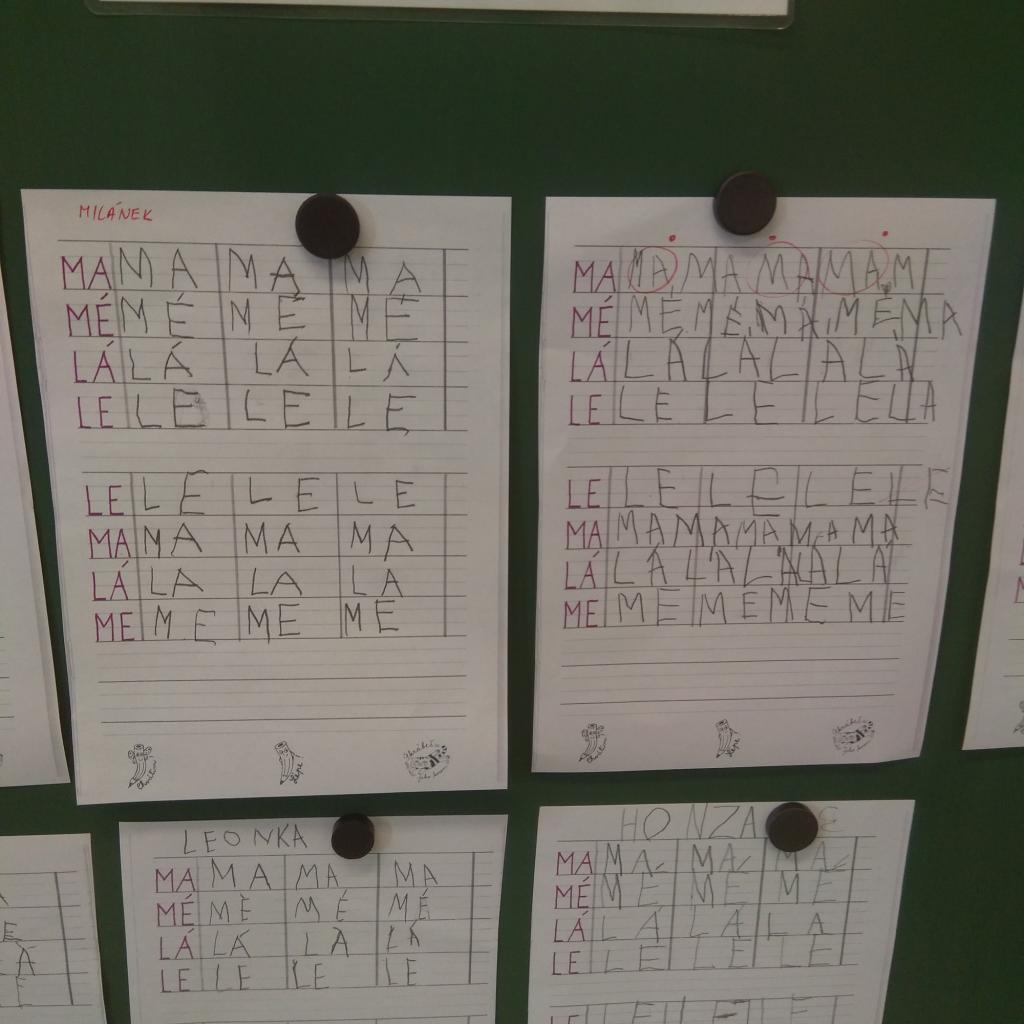 MILÁNEK
MA MA MA MA
MÉ MÉ MÉ MÉ
LÁ LÁ LÁ LÁ
LE LE LE LE
LE LE LE LE
MA MA MA MA
LÁ LA LA LA
ME ME ME ME
MA MA MA MA MA M
MÉ MÉ MÉ MÁ MÉ MA
LÁ LÁ LÁL A LA
LE LE LE LE LA
LE LE LE LE LE
MA MA MA MA MA MA
LÁ LÁ LA LA LA LA
ME ME ME ME ME
LEONKA
MA MA MA MA
MÉ MÉ MÉ MÉ
LÁ LÁ LÀ LÁ
LE LE LE LE
HONZA
MA MA MA MA
MÉ ME ME ME
LÁ LÁ LÁ LA
LE LE LE LE
LE LE LE LE